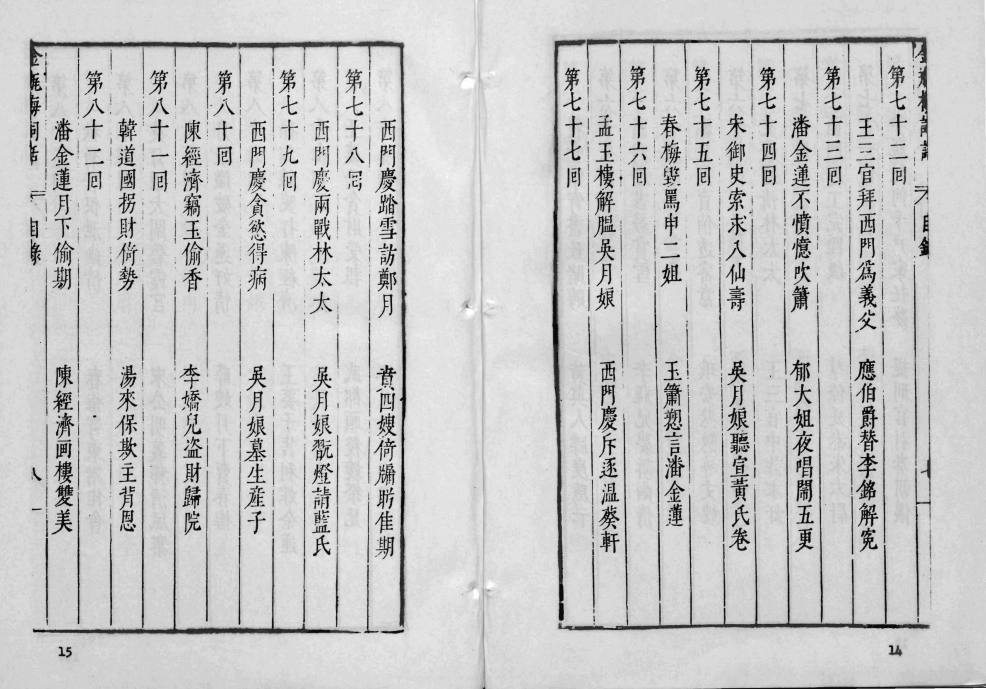 金瓶梅詞話 目錄 七
第七十二回
王三官拜西門爲義父 應伯爵替李銘解寃
第七十三回
潘金蓮不憤憶吹簫 郁大姐夜唱鬧五更
第七十四回
宋御史索求八仙壽 吳月娘聽宣黃氏卷
第七十五回
春梅毀罵申二姐 玉簫愬言潘金蓮
第七十六回
孟玉樓解慍吳月娘 西門慶斥逐温葵軒
第七十七回
14
西門慶踏雪訪鄭月 賁四嫂倚牖盻佳期
第七十八回
西門慶兩戰林太太 吳月娘翫燈請藍氏
第七十九回
西門慶貪慾得病 吳月娘墓生產子
第八十回
陳經濟竊玉偷香 李嬌兒盗財歸院
第八十一回
韓道國拐財倚勢 湯來保欺主背恩
第八十二回
潘金蓮月下偷期 陳經濟画樓雙美
金瓶梅詞話 目錄 八
15